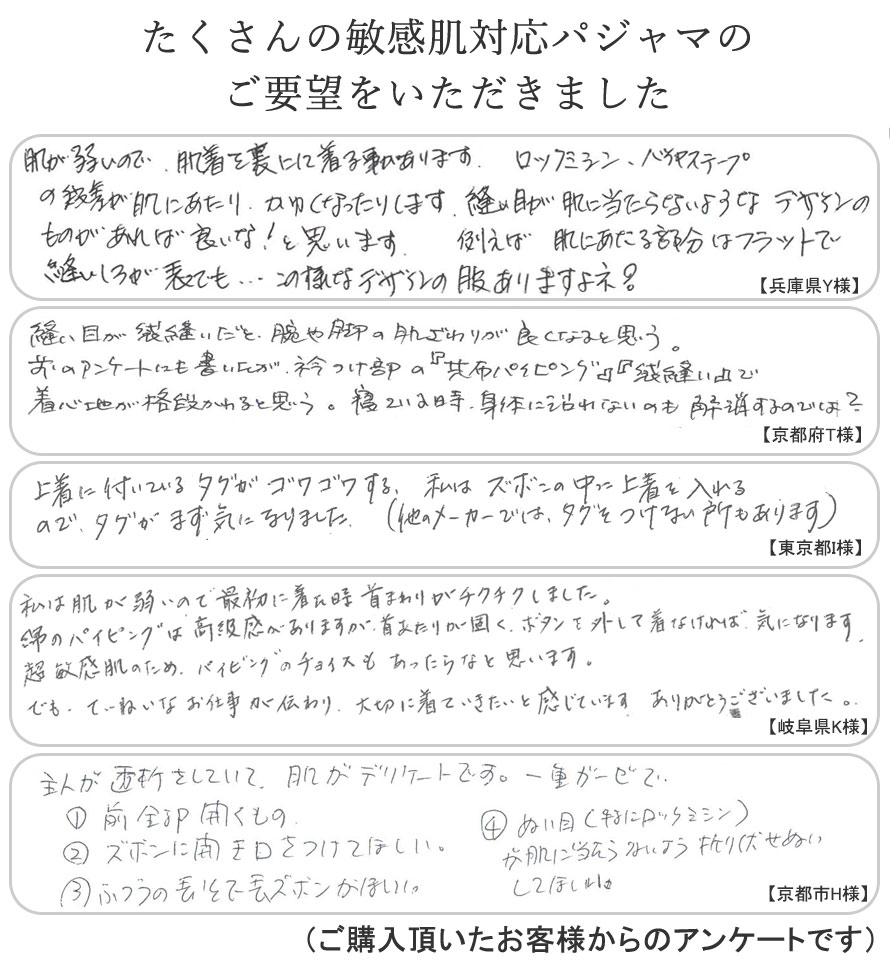 たくさんの敏感肌対応パジャマの
ご要望をいただきました
肌が弱いので、肌着を裏にして着る事があります。ロックミシン、バイヤステープ
の段差が肌にあたり、かゆくなったりします。縫い目が肌に当たらないようなデザインの
ものがあれば良いな!と思います。例えば 肌にあたる部分はフラットで
縫いしろが表でも…この様なデザインの服ありますよネ?
【兵庫県Y様】
縫い目が袋縫いだと、腕や脚の肌ざわりが良くなると思う。
前のアンケートにも書いたが、衿つけ部の『共布パイピング』『袋縫い』で
着心地が格段かわると思う。寝ている時、身体に沿わないのも解消するのでは?
【京都府T様】
上着に付いているタグがゴワゴワする。私はズボンの中に上着を入れる
ので、タグがまず気になりました。(他のメーカーでは、タグをつけない所もあります)
【東京都I様】
私は肌が弱いので最初に着た時首まわりがチクチクしました。
綿のパイピングは高級感がありますが、首あたりが固く、ボタンを外して着なければ気になります。
超敏感肌のため、パイピングのチョイスもあったらなと思います。
でも、ていねいなお仕事が伝わり、大切に着ていきたいと感じています ありがとうございました。
【岐阜県K様】
主人が透析をしていて、肌がデリケートです。一重ガーゼで、
① 前全部開くもの
② ズボンに開き口をつけてほしい。
③ ふつうの長そで長ズボンがほしい。
④ ぬい目(特にロックミシン)
が肌に当たらないよう折り伏せぬい
してほしい
【京都市H様】
(ご購入頂いたお客様からのアンケートです)